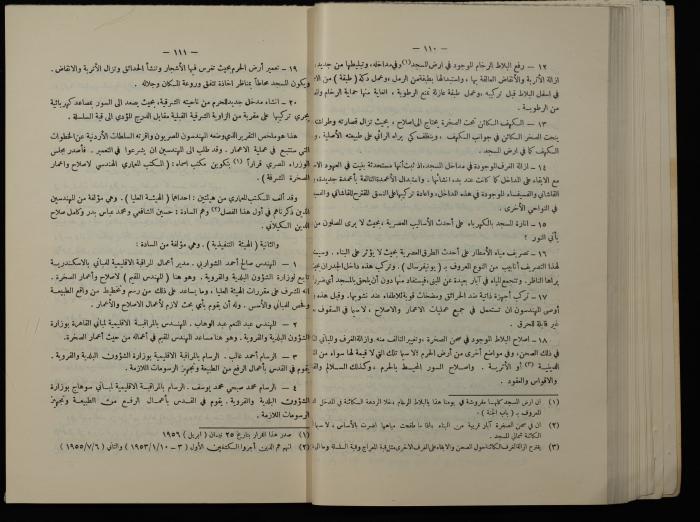 — ١١٠ —
١٢ – رفع البلاط الرخام الموجود في ارض المسجد(١) وفي مداخله، وتبليطها من جديد،
ازالة الأتربة والأنقاض العالقة بها ، واستبدالها بطبقة من الرمل، وعمل دكة ( طبقة ) من
في اسفل البلاط قبل تركيبه، وعمل طبقة عازلة تمنع الرطوبة ، الغاية منها حماية الرخام
من الرطوبة .
١٣ – الكهف الكائن تحت الصخرة يحتاج الى اصلاح ، بحيث تزال قصارته
ينحت الصخر الكائن في جوانب الكهف ، وينظف كي يراه الرائي على طبيعته الأصلية .
الكهف كما في ارض المسجد .
١٤ – ازالة الغرف الموجودة في مداخل المسجد، اذ ثبت أنها مستحدثة بنيت في العهود
مع الابقاء على المداخل كما كانت عند بدء انشائها . واستبدال الأعمدة التالفة بأعمدة جديدة،
القاشاني والفسيفساء الموجودة في هذه المداخل، واعادة تركيبها على النسق المقترح للقاشاني
في النواحي الأخرى .
١٥ – انارة المسجد بالكهرباء على أحدث الأساليب العصرية ، بحيث لا يرى المصلون من
يأتي النور ؟
١٦ – تصريف مياه الأمطار على أحدث الطرق العصرية بحيث لا يؤثر على البناء .
لهذا التصريف أنابيب من النوع المعروف بـ ( يونيفرسال ) . وتركب هذه داخل الجدران
يراها الناظر . وتتجمع المياه في آبار بعيدة عن المبنى، فيستفاد منها دون أن يلحق بالمسجد أي
١٧ – تركب أجهزة ذاتية ضد الحرائق ومضخات قوية للاطفاء عند نشوبها . وقبل هذه
أوصى المهندسون ان تستعمل في جميع عمليات الاعمار والاصلاح ، لا سيما في السقوف ،
غير قابلة للحرق .
١٨ – اصلاح البلاط الموجود في صحن الصخرة ، وتغيير التالف منه. وازالة الغرف والمباني
في ذلك الصحن، وفي مواضع أخرى من أرض الحرم ؛ لا سيما تلك التي لا قيمة لها سواء من
الدينية (٣) أو الأثرية . واصلاح السور المحيط بالحرم ، وكذلك السلالم
والاقواس والعقود .
(١) ان ارض المسجد كلها مفروشة في يومنا هذا بالبلاط الرخام ، خلا الردهة الكائنة في المدخل
المعروف بـ ( باب الجنة ) .
(٢) ان في صحن الصخرة آبار قريبة من البناء ، اذا ما طفحت مياهها اضرت بالأساس ، لا سيما
الكائنة شمالي المسجد .
(٣) يقترح ازالة الغرف الكائنة حول الصحن والابقاء على الغرف الاخرى مثل قبة المعراج وقبة السلسلة
— ١١١ —
١٩ – تعمير أرض الحرم بحيث تغرس فيها الأشجار وتنشأ الحدائق وتزال الأتربة والانقاض .
ويكون المسجد محاطاً بمناظر أخاذة تتفق وروعة المكان وجلاله .
٢٠ – انشاء مدخل جديد للحرم من ناحيته الشرقية، بحيث يصعد الى السور بمصاعد كهربائية
يجري تركيبها على مقربة من الزاوية الشرقية القبلية مقابل الدرج المؤدي الى قبة السلسلة .
هذا هو ملخص التقرير الذي وضعه المهندسون المصريون واقرته السلطات الأردنية عن الخطوات
التي ستتبع في عملية الاعمار . وقد طلب الى المهندسين ان يشرعوا في التعمير . فأصدر مجلس
الوزراء المصري قراراً (١) بتكوين مكتب اسماه : ( المكتب المعماري الهندسي لاصلاح واعمار
الصخرة الشرفة ) .
وقد ألف المكتب المعماري من هيئتين : احداهما ( الهيئة العليا ) . وهي مؤلفة من المهندسين
الذين ذكرناهم في أول هذا الفصل(٢) وهم السادة : حسين الشافعي ومحمد عباس بدر وكامل صلاح
الدين الكيلاني .
والثانية ( الهيئة التنفيذية ) . وهي مؤلفة من السادة :
١ – المهندس صالح أحمد الشواربي . مدير أعمال المراقبة الاقليمية للمباني بالاسكندرية
تابع لوزارة الشؤون البلدية والقروية . وهو هنا ( المهندس المقيم ) لاصلاح وأعمار الصخرة .
انه المشرف على مقررات الهيئة العليا ، وما يساعد على ذلك من رسم وتخطيط من واقع الطبيعة
وفحص للمباني والأسس . وله أن يقوم بأي بحث لازم لأعمال الاصلاح والأعمار.
٢ – المهندس عبد المنعم عبد الوهاب . المهندس بالمراقبة الاقليمية لمباني القاهرة بوزارة
الشؤون البلدية والقروية . وهو هنا مساعد المهندس المقيم في أعماله من حيث أعمار الصخرة.
٣ – الرسام أحمد غالب . الرسام بالمراقبة الاقليمية بوزارة الشؤون البلدية والقروية .
يقوم في القدس بأعمال الرفع من الطبيعة وتجهيز الرسومات اللازمة .
٤ – الرسام محمد صبحي محمد يوسف . الرسام بالمراقبة الاقليمية لمباني سوهاج بوزارة
الشؤون البلدية والقروية . يقوم في القدس بأعمال الرفع من الطبيعة وتجهيز
الرسومات اللازمة .
(١) صدر هذا القرار بتاريخ ٢٥ نيسان ( ابريل ) ١٩٥٦
(٢) انهم هم الذين أجروا الكشفين الأول ( ٣ – ١٩٥٣/١/١٠ ) والثاني ( ١٩٥٥/٧/٦ )